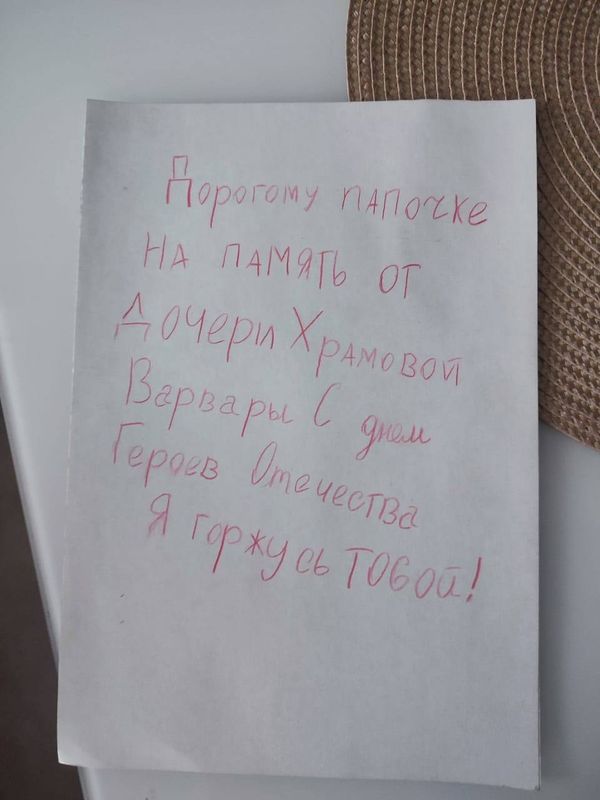 Дорогому папочке
на память от
Дочери Храмовой
Варвары С днем
Героев Отечества
Я горжусь тобой!